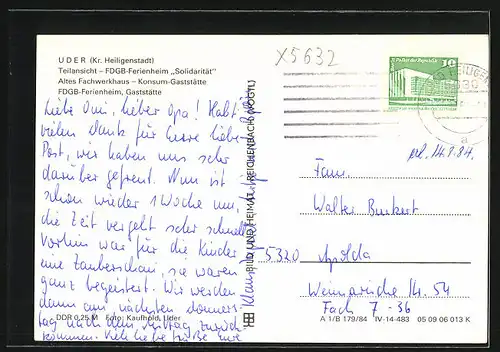 UDER (Kr. Heiligenstadt)
Teilansicht – FDGB-Ferienheim „Solidarität"
Altes Fachwerkhaus – Konsum-Gaststätte
FDGB-Ferienheim, Gaststätte
X5632
Palast der Republik 10
HEILIGEN
a
Liebe Omi, lieber Opa! Habt
vielen Dank für Eure liebe
Post, wir haben uns sehr
darüber gefreut. Nun ist
schon wieder 1 Woche um,
die Zeit vergeht sehr schnell
Vorhin war für die Kinder
eine Zauberschau, sie waren
ganz begeistert. Wir werden
dann am nächsten Donners-
tag nach dem Mittag zurück
kommen. Viele liebe Grüße Eure
Klaus
BILD UND HEIMAT REICHENBACH (VOGTL)
14.9.84.
Fam.
Walter Burkert
5320 Apolda
Weimarische Str. 54
Fach 7-36
DDR 0,25 M Foto: Kaufhold, Uder
A 1/B 179/84 IV-14-483 05 09 06 013 K